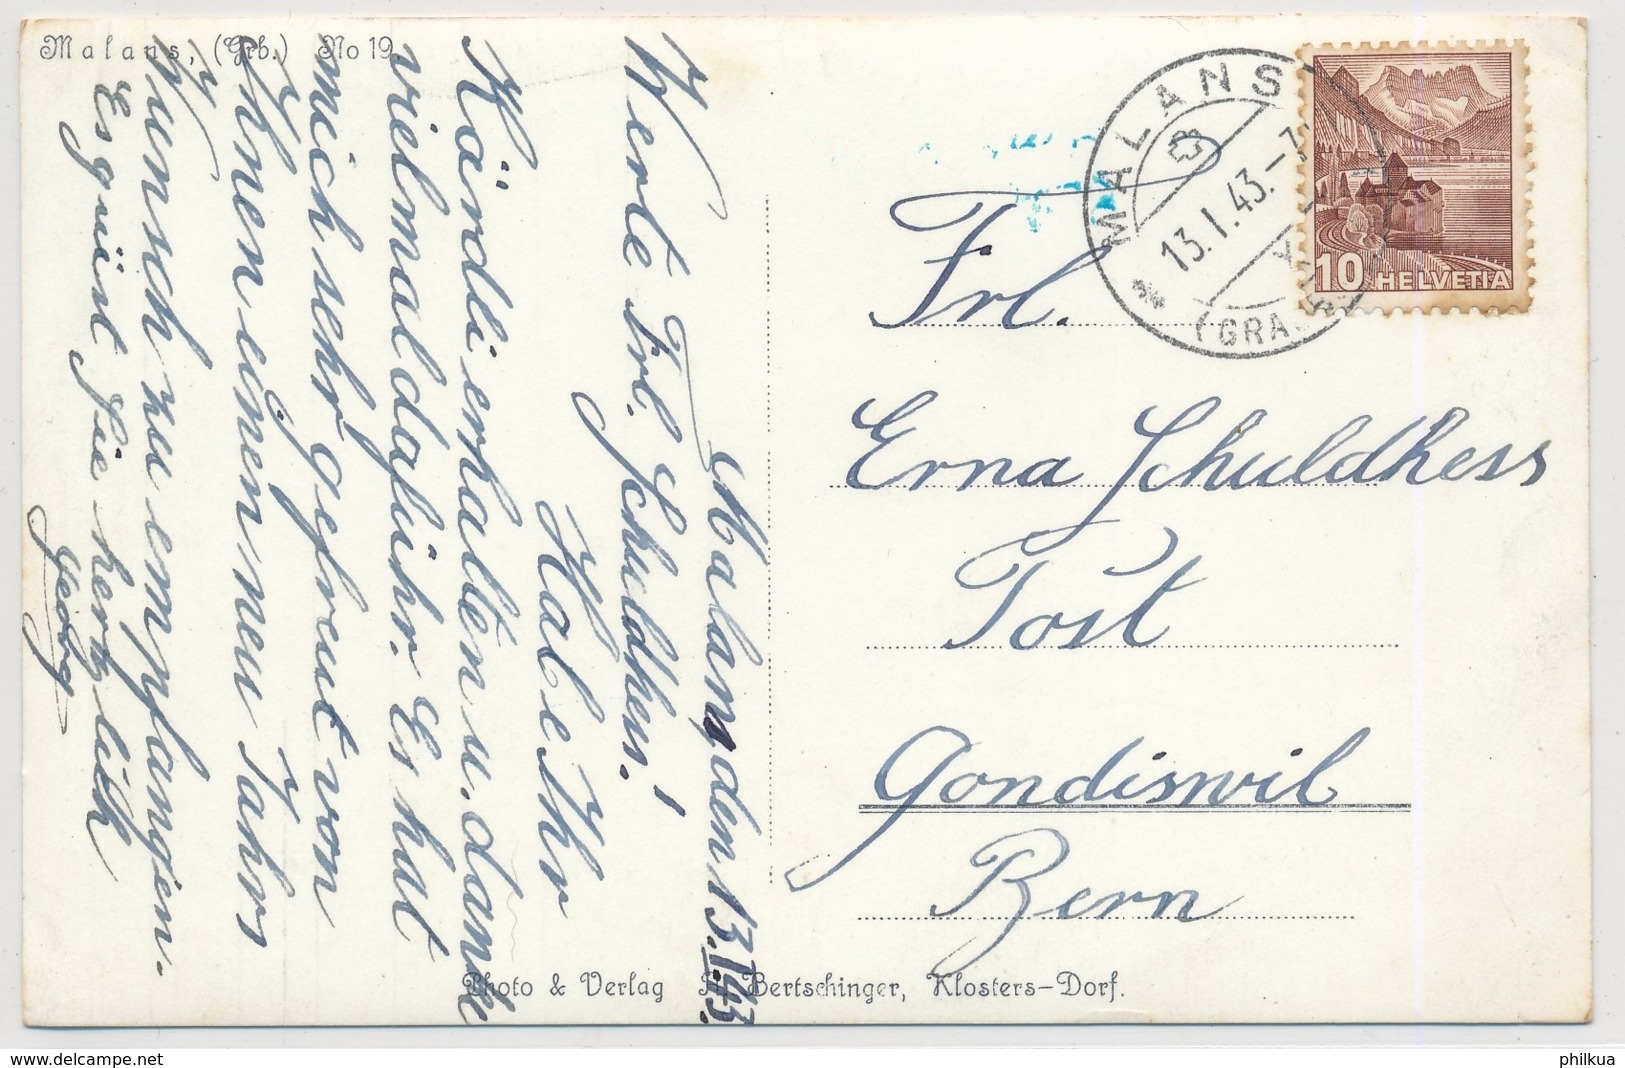 Malans, (Grb.) No 19.
Malans, den 13.I.43.
Werte Frl. Schuldhess!
Habe Ihr
Kärdli erhalten u. danke
vielmal daführ. Es hat
mich sehr gefreut von
Ihnen einen neu Jahrs
Wunsch zu empfangen.
Es grüst Sie herzlich
Georg
MALANS
13.I.43.
(GRA
10 HELVETIA
Frl.
Erna Schuldhess
Post
Gondiswil
Bern
Photo & Verlag H. Bertschinger, Klosters-Dorf.
philkua